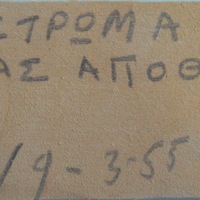 ΣΤΡΩΜΑ
ΑΣ ΑΠΟΘ
/9-3-55